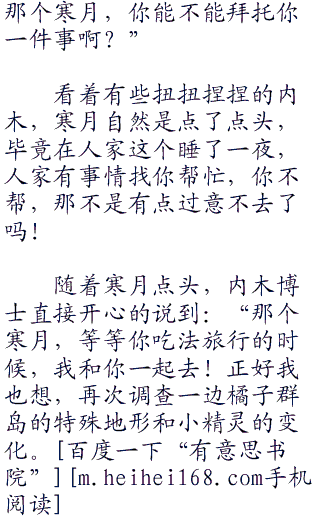 那个寒月，你能不能拜托你
一件事啊？”
看着有些扭扭捏捏的内
木，寒月自然是点了点头，
毕竟在人家这个睡了一夜，
人家有事情找你帮忙，你不
帮，那不是有点过意不去了
吗！
随着寒月点头，内木博
士直接开心的说到：“那个
寒月，等等你吃法旅行的时
候，我和你一起去！正好我
也想，再次调查一边橘子群
岛的特殊地形和小精灵的变
化。[百度一下“有意思书
院”][m.heihei168.com手机
阅读]